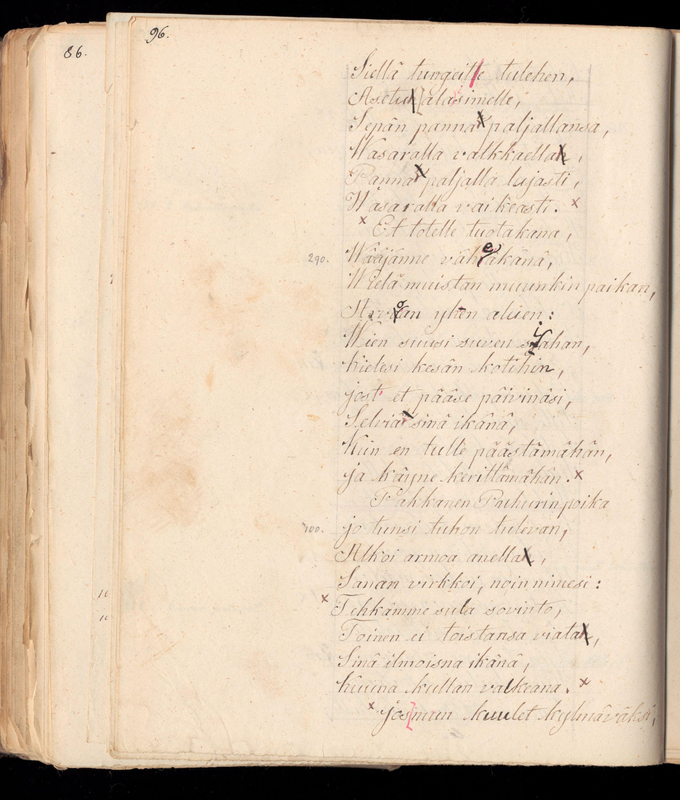 86.
96.
Siellä tungeille tulehen,
Asetuk alasimelle,
Sepän panna paljallansa,
Wasaralla valkkaellak,
Panna paljalla lujasti,
Wasaralla vaikeasti. x
x Et totelle tuotakana,
290. Wääjänne vähäkänä,
Wielä muistan muunkin paikan,
yhen aluen:
Wien suusi suven
kielesi kesän kotihin,
jost et pääse päivinäsi,
Selviä sinä ikänä,
Kun en tulle päästämähän,
ja käyne kerittämähän. x
Pakkanen Puhurin poika
300. jo tunsi tuhon tulevan,
Alkoi armoa anella,
Sanan virkkoi, noin nimesi:
x Tehkämme sula sovinto,
Toinen ei toistansa viata,
Sinä ilmoisna ikänä,
kuuna kullan valkeana. x
x jos mun kuulet kylmäväksi,